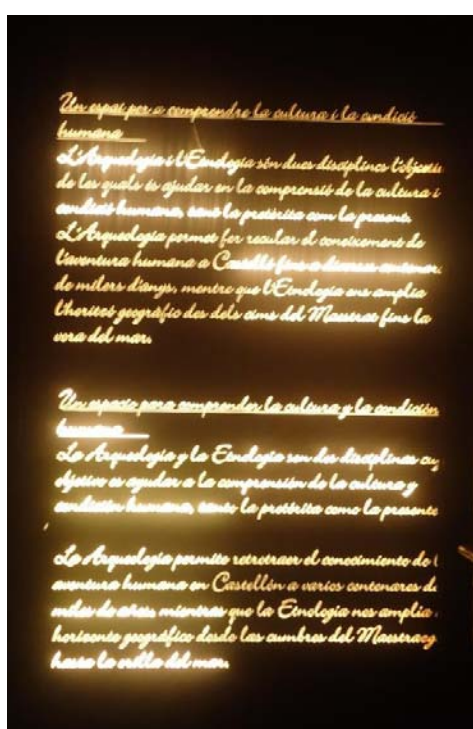 Un espai per a comprendre la cultura i la condició
humana
L'Arqueologia i l'Etnologia són dues disciplines l'objectiu
de les quals és ajudar en la comprensió de la cultura i
condició humana, tant la pretèrita com la present.
L'Arqueologia permet fer recular el coneixement de
l'aventura humana a Castelló fins a diversos centenars
de milers d'anys, mentre que l'Etnologia ens amplia
l'horitzó geogràfic des dels cims del Maestrat fins la
vora del mar.
Un espacio para comprender la cultura y la condición
humana
La Arqueología y la Etnología son dos disciplinas cuyo
objetivo es ayudar a la comprensión de la cultura y
condición humana, tanto la pretérita como la presente
La Arqueología permite retrotraer el conocimiento de l
aventura humana en Castellón a varios centenares de
miles de años, mientras que la Etnología nos amplia
horizonte geográfico desde las cumbres del Maestrazg
hasta la orilla del mar.